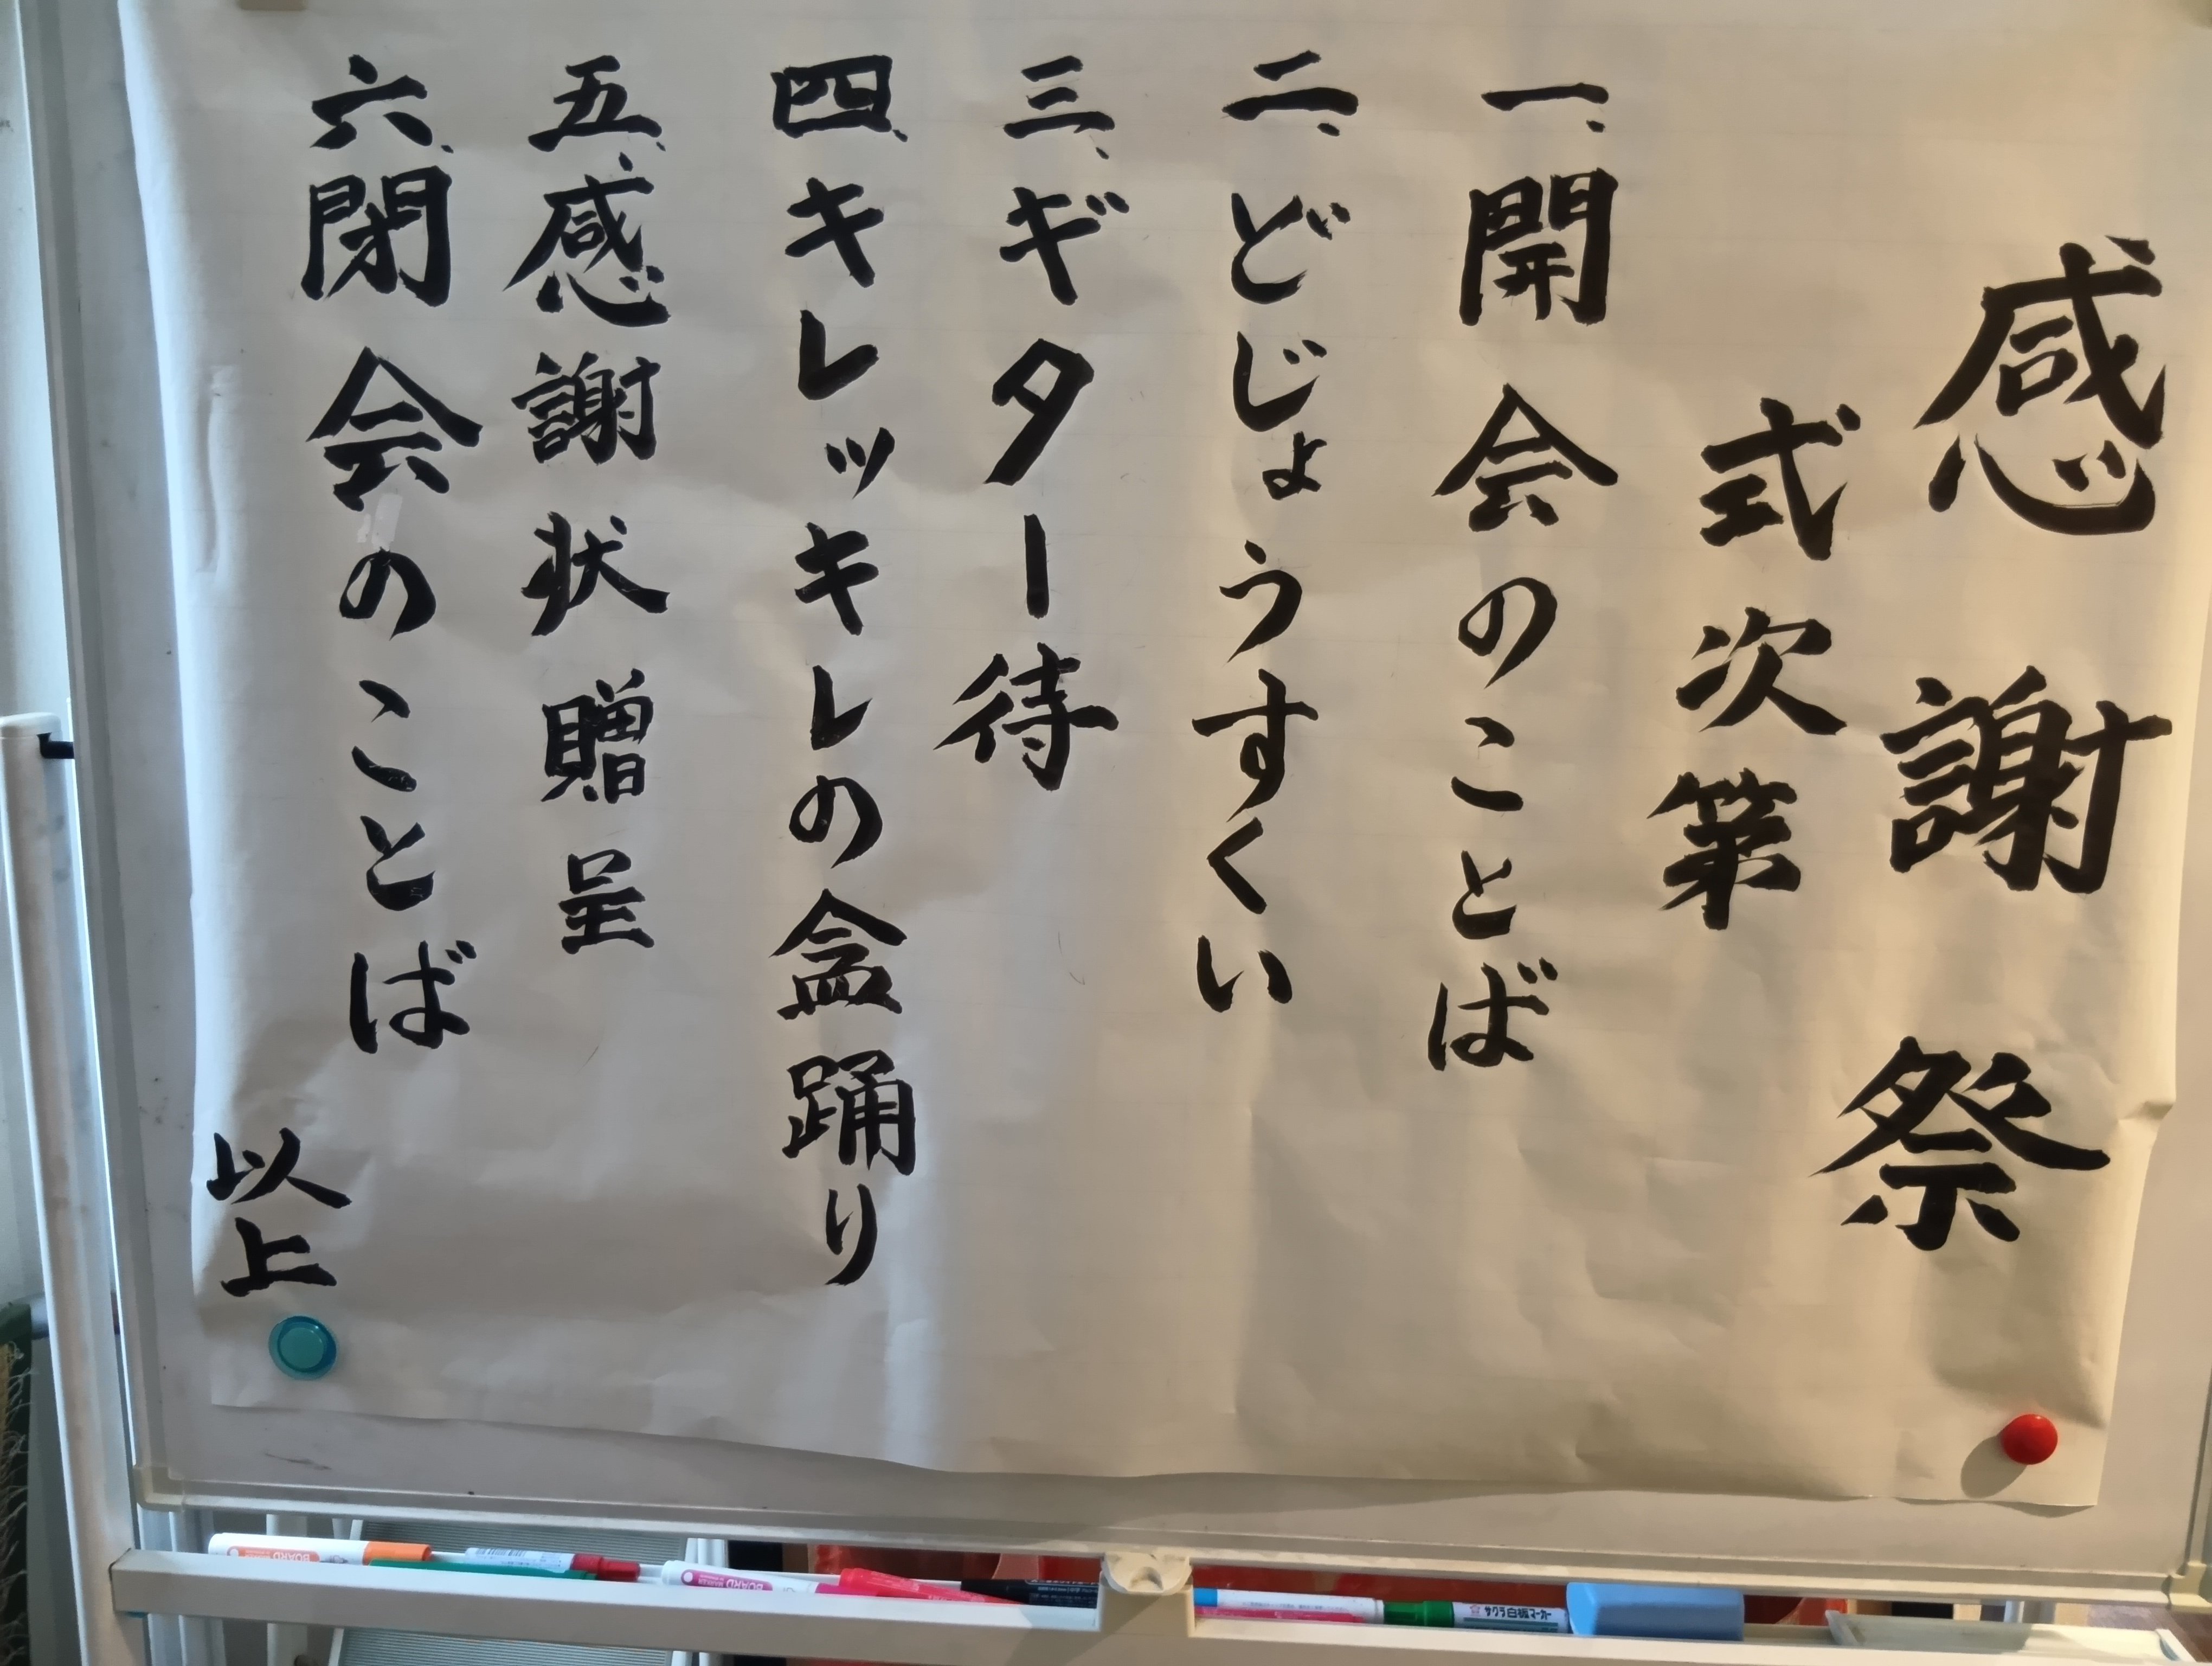 感謝祭
式次第
一、開会のことば
二、どじょうすくい
三、ギター待
四、キレッキレの盆踊り
五、感謝状贈呈
六、閉会のことば
以上
BOARD
BOARD
サクラ白板マーカー